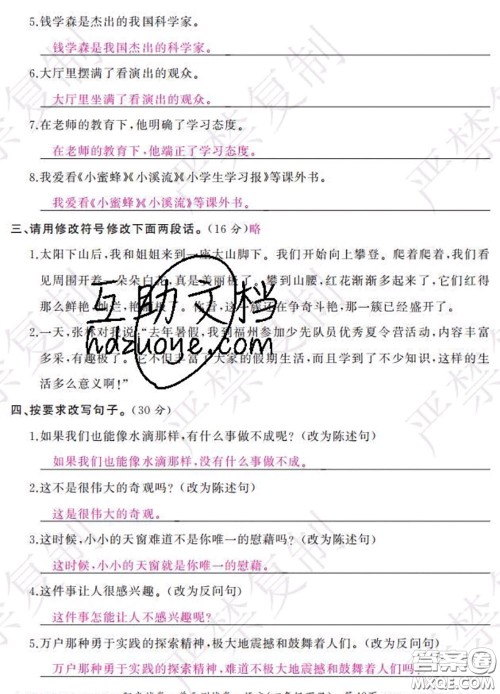 5.钱学森是杰出的我国科学家。
钱学森是我国杰出的科学家。
6.大厅里摆满了看演出的观众。
大厅里坐满了看演出的观众。
7.在老师的教育下,他明确了学习态度。
在老师的教育下,他端正了学习态度。
8.我爱看《小蜜蜂》《小溪流》《小学生学习报》等课外书。
我爱看《小蜜蜂》《小溪流》等课外书。
三、请用修改符号修改下面两段话。(16 分)略
1.太阳下山后,我和姐姐来到一座大山脚下。我们开始向上攀登。爬着爬着,我们看
见周围开着一朵朵白花,真是美丽极了。攀到山腰,红花渐渐多起来了,它们红得
那么鲜艳、灿烂、艳丽极了。你看,这一簇还在争奇斗艳,那一簇已经盛开了。
2.一天,张林对我说:“去年暑假,我到福州参加少先队员优秀夏令营活动,内容丰富
多采,有趣极了。它不但丰富了大家的假期生活,而且学到了不少知识,这样的生
活多么意义啊!”
四、按要求改写句子。(30 分)
1.如果我们也能像水滴那样,有什么事做不成呢?(改为陈述句)
如果我们也能像水滴那样,没有什么事做不成。
2.这不是很伟大的奇观吗?(改为陈述句)
这是很伟大的奇观。
3.这时候,小小的天窗难道不是你唯一的慰藉吗?(改为陈述句)
这时候,小小的天窗就是你唯一的慰藉。
4.这件事让人很感兴趣。(改为反问句)
这件事怎能让人不感兴趣呢?
5.万户那种勇于实践的探索精神,极大地震撼和鼓舞着人们。(改为反问句)
万户那种勇于实践的探索精神,难道不极大地震撼和鼓舞着人们吗?
严禁复制
互助文档
hdzuone.com